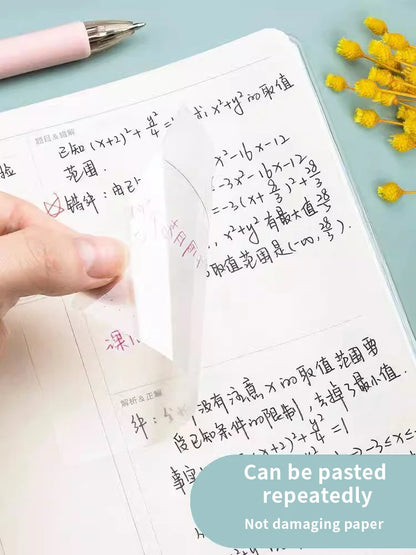 题目&错解
已知(x+2)²+y²/4=1 求x²+y²的取值
范围.
错解:由已
x²-16x-12
=-3x²-16x-12
=-3(x+8/3)²+28/3
x²+y²有最大值28/3
取值范围是(-∞,28/3).
解析&正解
没有注意x的取值范围要
受已知条件的限制,丢掉了最小值.
事实
(x+2)²+y²/4=1
-3≤x≤-
Can be pasted
repeatedly
Not damaging paper